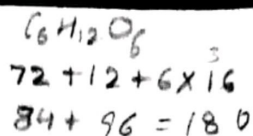 C₆H₁₂O₆
72 + 12 + 6 × 16
84 + 96 = 180